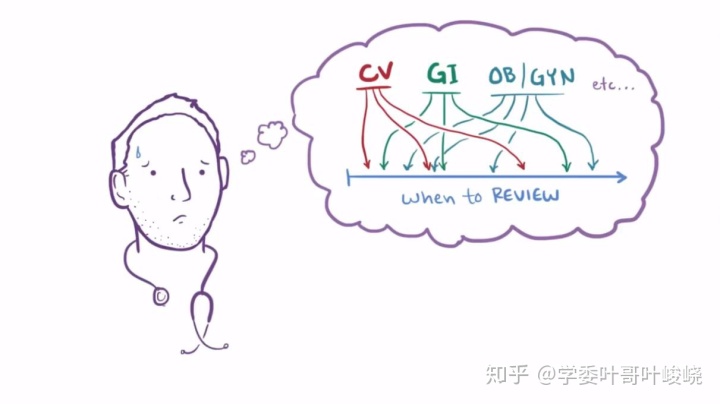 CV GI OB/GYN etc...
when to REVIEW
知乎 @学委叶哥叶峻峣